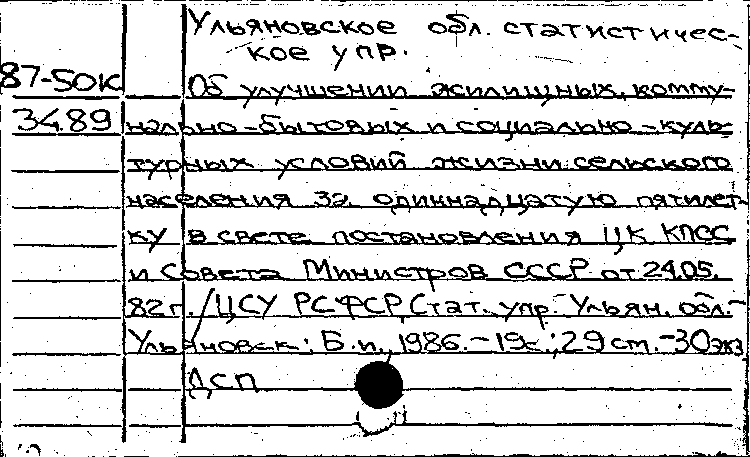 Ульяновское обл. статистичес-
кое упр.
87-50к
Об улучшении жилищных, комму-
34.89 нально-бытовых и социально-куль-
турных условий жизни сельского
населения за одиннадцатую пятилет-
ку в свете постановления ЦК КПСС
и Совета Министров СССР от 24.05.
82г./ЦСУ РСФСР, Стат. упр. Ульян. обл.-
Ульяновск: Б.и., 1986.-19с.; 29 см.-30экз
ДСП